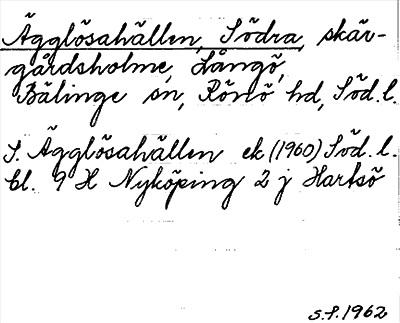 Ägglösahällen, Södra, skär-
gårdsholme, Långö,
Bälinge sn, Rönö hd, Söd. l.
S. Ägglösahällen ek (1960) Söd. l.
bl. 9 H Nyköping 2 j Hartsö
S.F. 1962